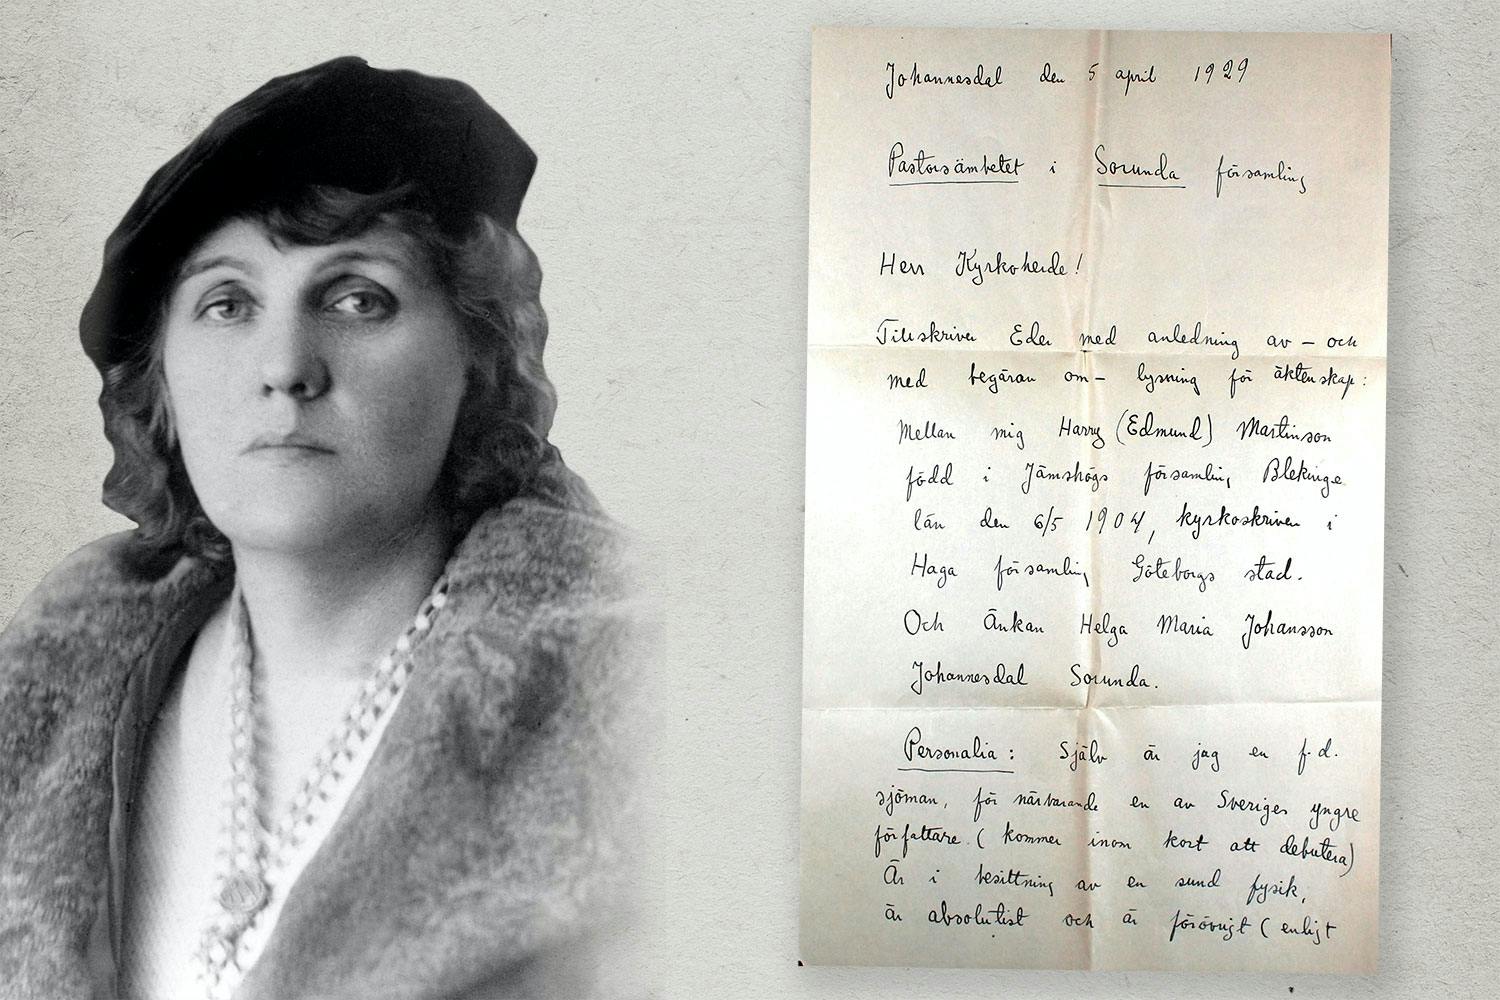 Johannesdal den 5 april 1929
Pastorsämbetet i Sorunda församling
Herr Kyrkoherde!
Tillskriver Eder med anledning av – och
med begäran om – lysning för äktenskap:
Mellan mig Harry (Edmund) Martinson
född i Jämshögs församling Blekinge
län den 6/5 1904, kyrkoskriven i
Haga församling Göteborgs stad.
Och Änkan Helga Maria Johansson
Johannesdal Sorunda.
Personalia: Själv är jag en f.d.
sjöman, för närvarande en av Sveriges yngre
författare. (kommer inom kort att debutera)
Är i besittning av en sund fysik,
är absolutist och är förövrigt (enligt